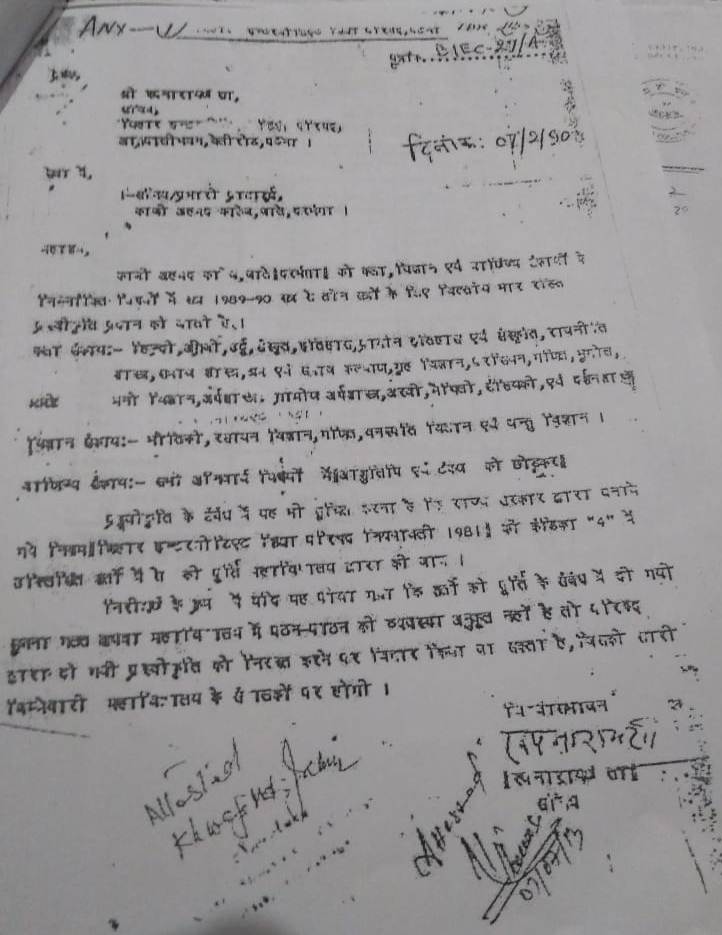 ANX-
BIEC-29/A
प्रेषक,
श्री रूपनारायण झा,
सचिव,
बिहार इन्टर शिक्षा परिषद,
पटना ।
दिनांक: 07/2/90
सेवा में,
सचिव/प्रभारी प्राचार्य,
काजी अहमद कालेज, जाले, दरभंगा ।
महाशय,
काजी अहमद कालेज, जाले दरभंगा को कला, विज्ञान एवं वाणिज्य संकायों में
निम्नांकित विषयों में सत्र 1989-90 से तीन सत्रों के लिए वित्तीय भार रहित
प्रस्वीकृति प्रदान की जाती है ।
कला संकाय:- हिन्दी, अंग्रेजी, उर्दू, संस्कृत, इतिहास, प्राचीन इतिहास एवं संस्कृति, राजनीति
शास्त्र, समाज शास्त्र, श्रम एवं समाज कल्याण, गृह विज्ञान, गणित, भूगोल,
मनोविज्ञान, अर्थशास्त्र, ग्रामीण अर्थशास्त्र, अरबी, मैथिली, सांख्यिकी, एवं दर्शनशास्त्र
विज्ञान संकाय:- भौतिकी, रसायन विज्ञान, गणित, वनस्पति विज्ञान एवं जन्तु विज्ञान ।
वाणिज्य संकाय:- सभी अनिवार्य विषयों में आशुलिपि एवं टंकण को छोड़कर
प्रस्वीकृति के संबंध में यह भी सूचित करना है कि राज्य सरकार द्वारा बनाये
गये नियम बिहार इन्टरमीडिएट शिक्षा परिषद नियमावली 1981 की कंडिका "4" में
उल्लिखित शर्तों की पूर्ति महाविद्यालय द्वारा की जाय ।
निरीक्षण के क्रम में यदि यह पाया गया कि शर्तों की पूर्ति के संबंध में दी गयी
सूचना गलत अथवा महाविद्यालय में पठन-पाठन की व्यवस्था अनुकूल नहीं है तो परिषद
द्वारा दी गयी प्रस्वीकृति को निरस्त करने पर विचार किया जा सकता है, जिसकी सारी
जिम्मेवारी महाविद्यालय के पर होगी ।
विश्वासभाजन
रूपनारायण झा
रूपनारायण झा
सचिव
Attested
Attested
07/07/13